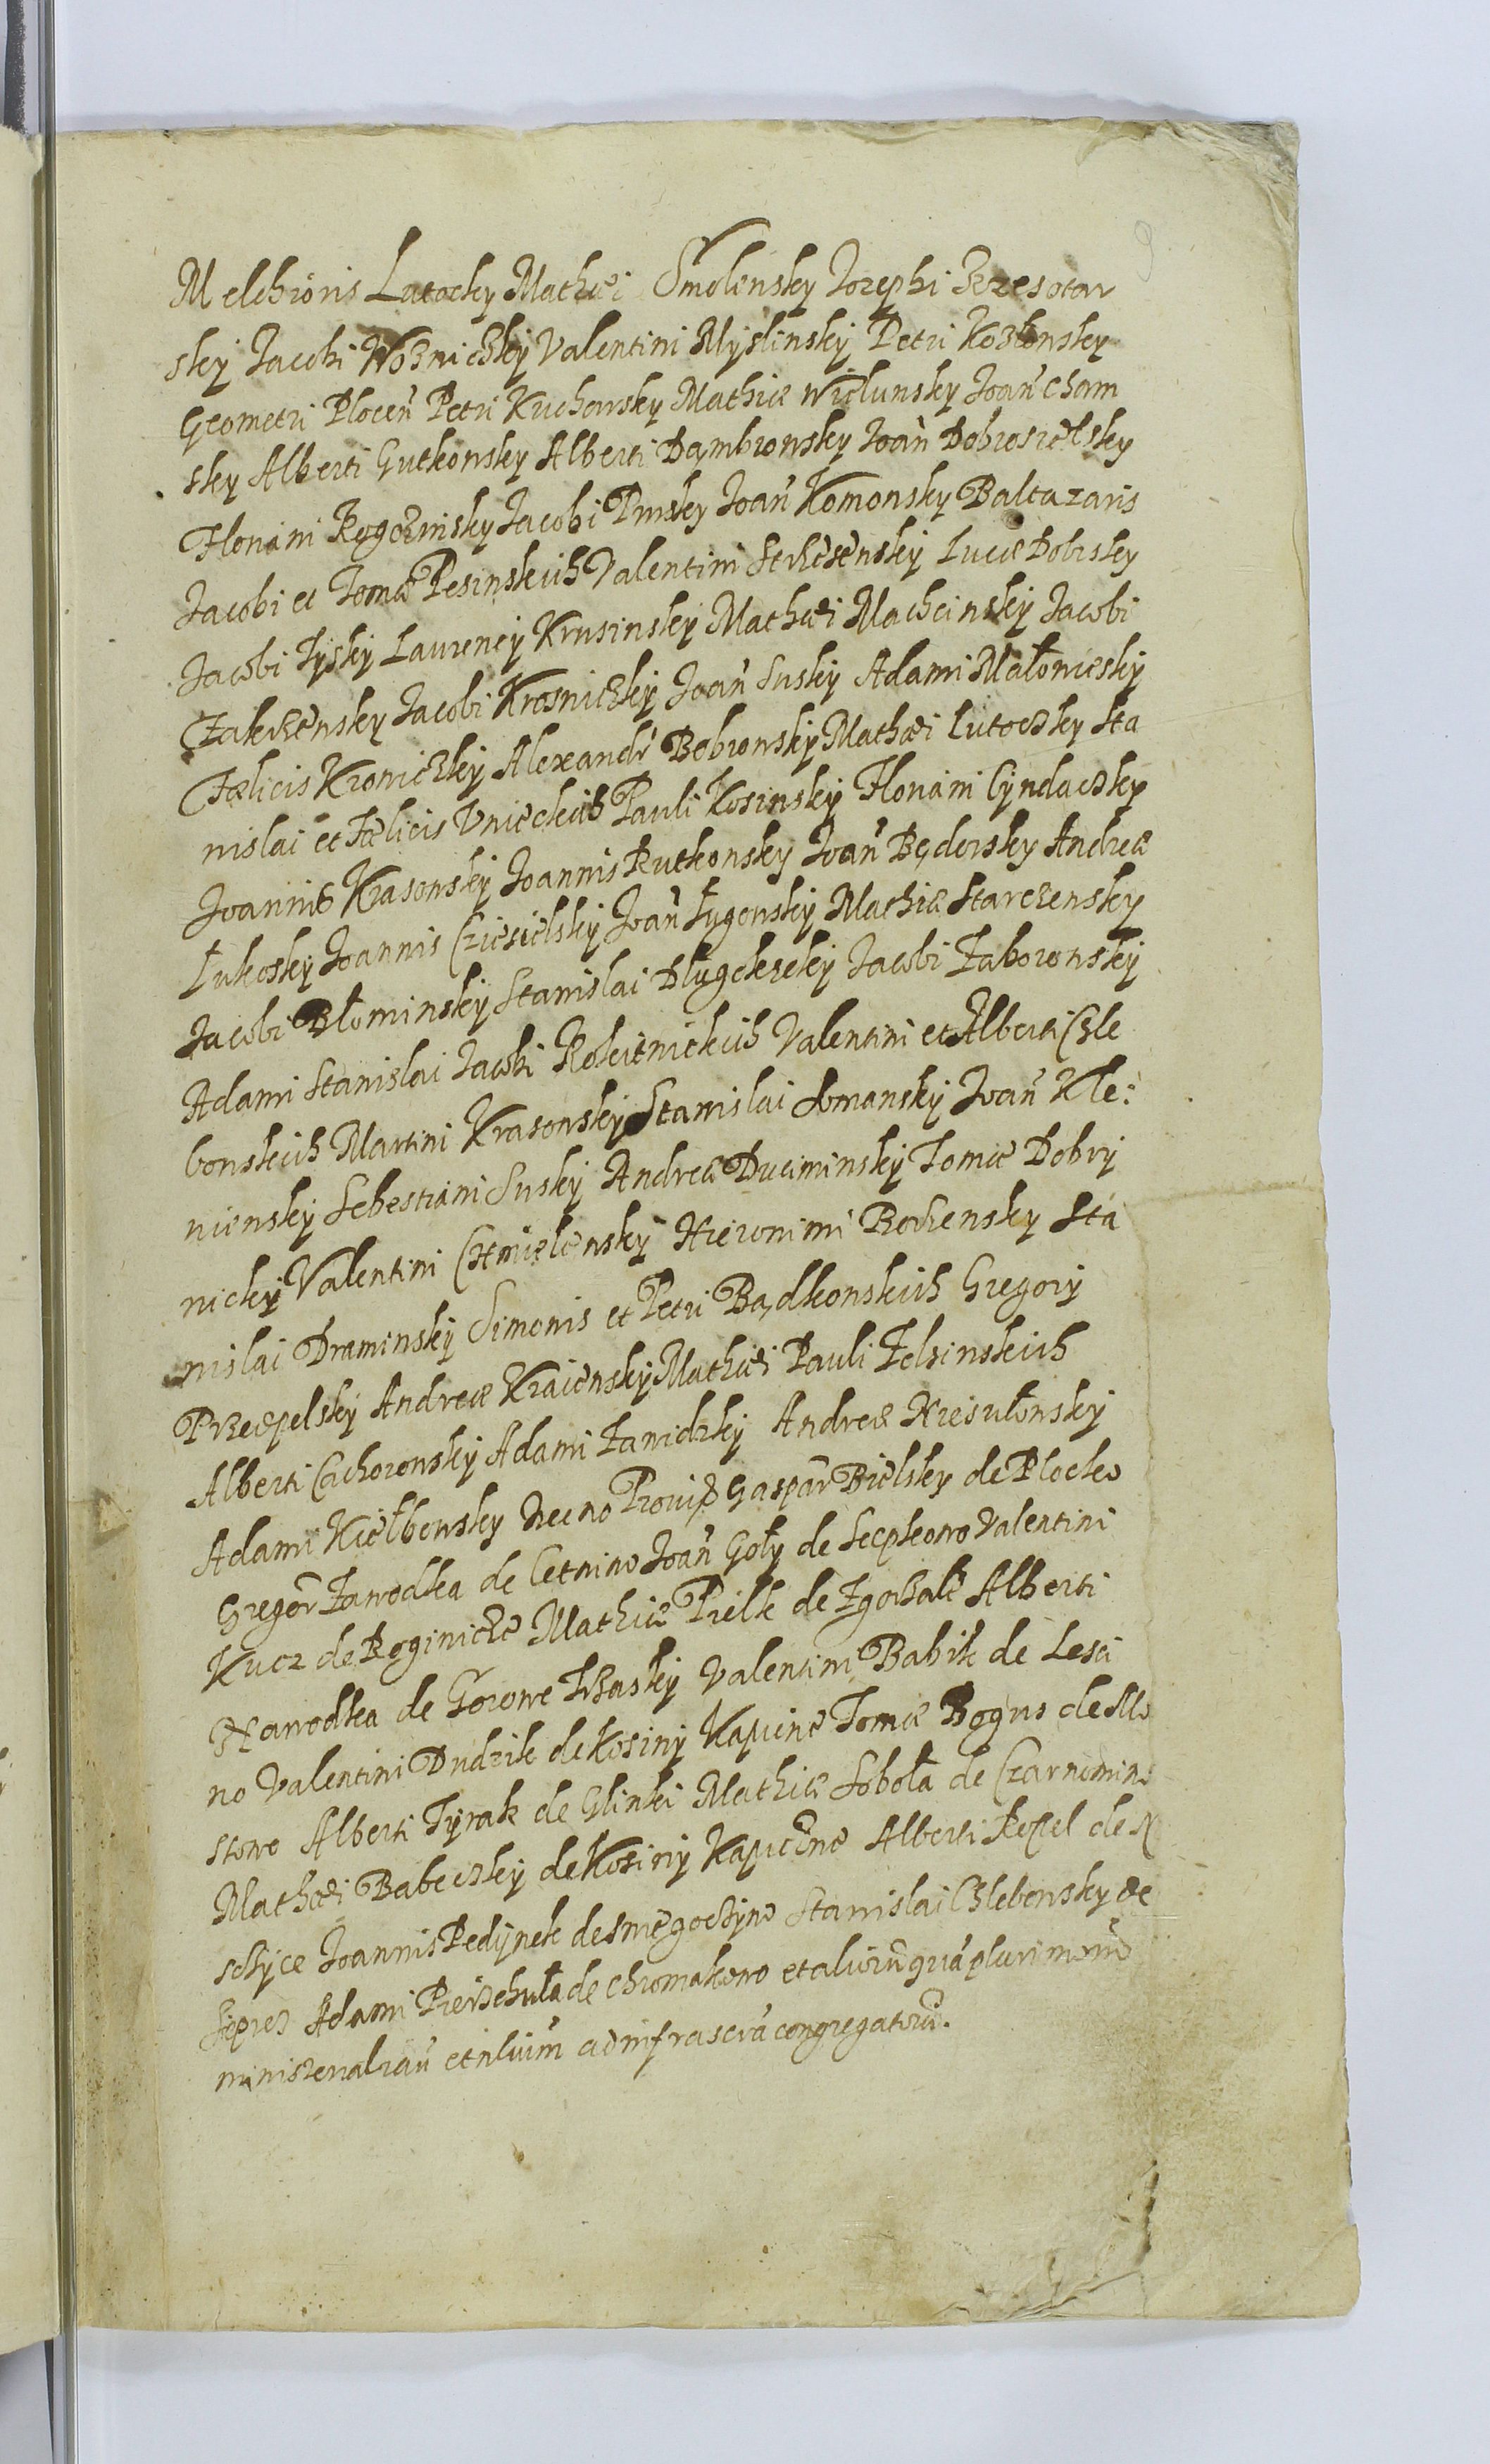 9
Melchioris Lutocky Mathæi Smolensky Iozephi Brzesotar
sky Iacobi Woznickzky Valentini Myslinsky Petri Kozłonsky
Geometri Plocen̄ Petri Kucharsky Mathiæ Wielunsky Ioan̄ Cham
sky Alberti Gutkowsky Alberti Dąmbrowsky Ioan̄ Dobrosielsky
Floriani Rogozinsky Iacobi Prusky Ioan̄ Komonsky Baltazaris
Iacobi et Tomæ Pesinskich Valentini Strzesensky Lucæ Dobrsky
Iacobi Tysky Laurencÿ Krusinskÿ Mathæi Machcinskÿ Iacobi
Zakrzensky Iacobi Krosniczkÿ Ioan̄ Susky Adami Małoniesky
Fælicis Kroniczkÿ Alexandr̄ Bobronskÿ Mathæi Lutoczky Sta
nislai et Fælicis Unieckich Pauli Kosinskÿ Floriani Cÿndaczky
Ioannis Krasonskÿ Ioannis Rutkonsky Ioan̄ Będorsky Andreæ
Łukoskÿ Ioannis Cziesielskÿ Ioan̄ Ługonskÿ Mathiæ Starczensky
Iacobi Błominskÿ Stanislai Dlugokęckÿ Iacobi Zaboronskÿ
Adami Stanislai Iacobi Rokitnickich Valentini et Alberti Chle
bonskich Martini Krasonskÿ Stanislai Somanskÿ Ioan̄ Kle:
niensky Sebestiani Suskÿ Andreæ Duciminskÿ Tomæ Dobrz
nickÿ Valentini Chmielenskÿ Hieronimi Rochensky Sta
nislai Draminskÿ Simonis et Petri Bądkonskich Gregorÿ
Przecpelskÿ Andreæ Kraienskÿ Mathæi Pauli Zelsinskich
Alberti Cachoronskÿ Adami Zanidzkÿ Andreæ Niesułonskÿ
Adami Kiełbowsky Necno Prouiḑ Gaspar̄ Bielsky de Plocko
Gregor̄ Zawodka de Cetnino Ioan̄ Goły de Secpkowo Valentini
Kucz de Rogienicze Mathiæ Pielk de Zgorzale Alberti
Nawodka de Gorowe Trzaskÿ Valentini Babik de Lesci
no Valentini Dudzik de Kosinÿ Kapicine Tomæ Bogus de Mo
stowo Alberti Tyrak de Glinki Mathiæ Sobola de Czarnomino
Mathæi Babeczkÿ de Kosinÿ Kapicine Alberti Repel de N
schÿce Ioannis Pedÿnek de Sniegoczÿno Stanislai Chlebonsky de
Sieprcz Adami Pierzchała de Chromakowo et aliorū quā plurimorū
ministerialiū et nliūm ad infrascrā congregatorū.